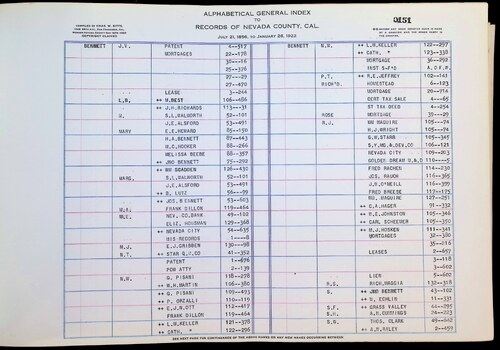 ALPHABETICAL GENERAL INDEX
TO
RECORDS OF NEVADA COUNTY, CAL.
JULY 21, 1856, TO JANUARY 26, 1922
0151
COPYRIGHT CLAIMED
BENNETT J.V. PATENT 4--317
MORTGAGES 22--178
32--16
25--376
27--29
27--470
LEASE 3--244
L.B. H.BEST 106--486
J.H.RICHARDS 113--31
M. S.L.DALWORTH 52--101
J.E.ALSFORD 53--491
MARY E.E.MEHARD 85--150
H.A.BENNETT 87--443
M.C.HOOKER 88--266
MELISSA BEEBE 88--357
JNO BENNETT 75--292
MD SCADDEN 126--430
MARG. S.L.DALWORTH 52--101
J.E.ALSFORD 53--491
B. LUTZ 56--99
JOS. BENNETT 53--603
M.A. FRANK DILLON 119--464
M.E. NEV. CO BANK 49--102
ELIZ. HOUSMAN 129--368
NEVADA CITY 54--635
MIS RECORDS 1----8
M.J. E.J.GRIBBEN 130--98
N.T. STAR G.M.CO 41--352
PATENT 1--676
POW ATTY 2--139
N.W. G. PISANI 118--278
W.H.MARTIN 106--380
G. PISANI 109--493
P. ORZALLI 110--119
E.J.N.OTT 112--417
FRANK DILLON 119--464
L.W.KELLER 121--378
CATH. " 122--296
BENNETT N.W. L.W.KELLER 122--297
CATH. M. 123--338
MORTGAGE 36--292
P.T. R.E.JEFFREY 102--143
RICH'D. HOMESTEAD 6--123
MORTGAGE 20--714
CERT TAX SALE 4--65
ST TAX DEED 4--254
ROSE MORTGAGE 35--29
R.J. WM MAGUIRE 105---74
H.J.WRIGHT 105---74
G.W.STARR 105--345
S.Y.MG.& DEV.CO 106--121
NEVADA CITY
FRED RACHER 114--238
JOS. RAUCH 116--365
J.H.O'NEILL 116--399
FRED BREESE 117--175
WM. MAGUIRE
C.A.HAGER 91--332
R.E.JOHNSTON 105--346
CARL SCHEEMER
M.J.HOSKEN 111--341
MORTGAGES 32--380
35--216
LEASES 2--657
3--118
3--602
LIEN 5--602
R.S. RICH.MAGGIA 132--318
S. JNO BENNETT 43--102
S. N. ECHLIN 11--331
S.F. GRASS VALLEY 64--295
S.H. A.H.CUMMINGS 24--023
S.N. THOS. CLARK 49--642
A.D.RILEY
SEE NEXT PAGE FOR CONTINUANCE OF THE ABOVE NAMES OR ANY NEW NAMES OCCURRING BETWEEN